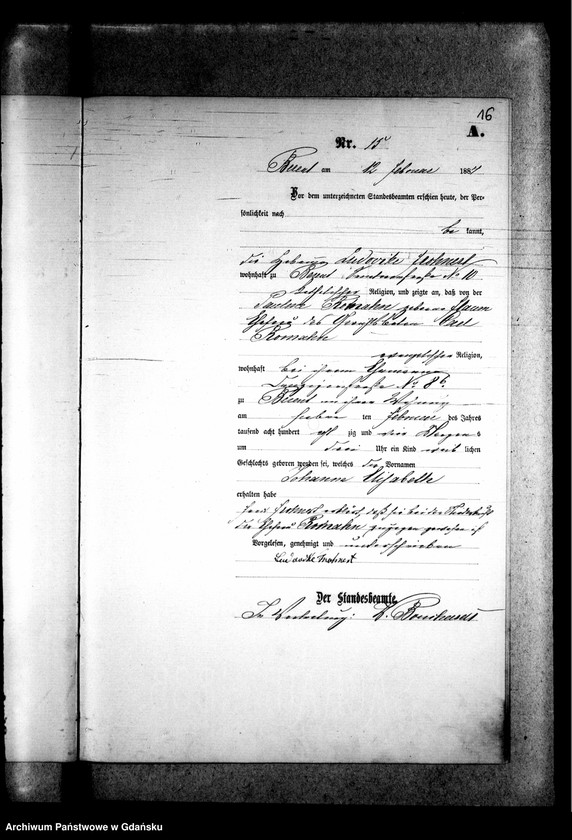 16
A.
Nr. 15
Berent am 12 Februar 1884
Vor dem unterzeichneten Standesbeamten erschien heute, der Per-
sönlichkeit nach
be kannt,
die Hebamme Ludovike
wohnhaft zu Berent No 10
katholischer Religion, und zeigte an, daß von der
Pauline Romahn geborene
Ehefrau des Gerichtsboten
Romahn
evangelischer Religion,
wohnhaft bei ihrem Ehemann
No 86
zu Berent in ihrer Wohnung
am sieben ten Februar des Jahres
tausend acht hundert acht zig und vier Morgens
um drei Uhr ein Kind weib lichen
Geschlechts geboren worden sei, welches die Vornamen
Johanna Elisabeth
erhalten habe
Frau erklärt, daß sie bei der Niederkunft
der Ehefrau Romahn zugegen gewesen ist
Vorgelesen, genehmigt und unterschrieben
Der Standesbeamte.
In Vertretung:
Archiwum Państwowe w Gdańsku